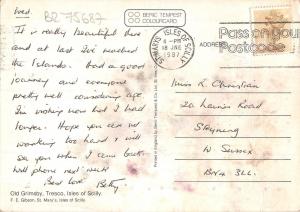 B2 75687
Wed.
BERIC TEMPEST
COLOURCARD
It is really beautiful here
and at last I've reached
the Islands. Had a good
journey and everyone
pretty well considering age.
I'm wishing now that I had
longer. Hope you are not
working too hard & will
see you when I come back
will phone next week
Best love. Betty
Old Grimsby, Tresco, Isles of Scilly.
F. E. Gibson, St. Mary's, Isles of Scilly.
ST MARYS, ISLES OF SCILLY
6 - PM
18 JNE
1987
Pass on your
Postcode
ADDRESS
Miss R. Christian
20 Laines Road
Steyning
W. Sussex
BN44 3LL.